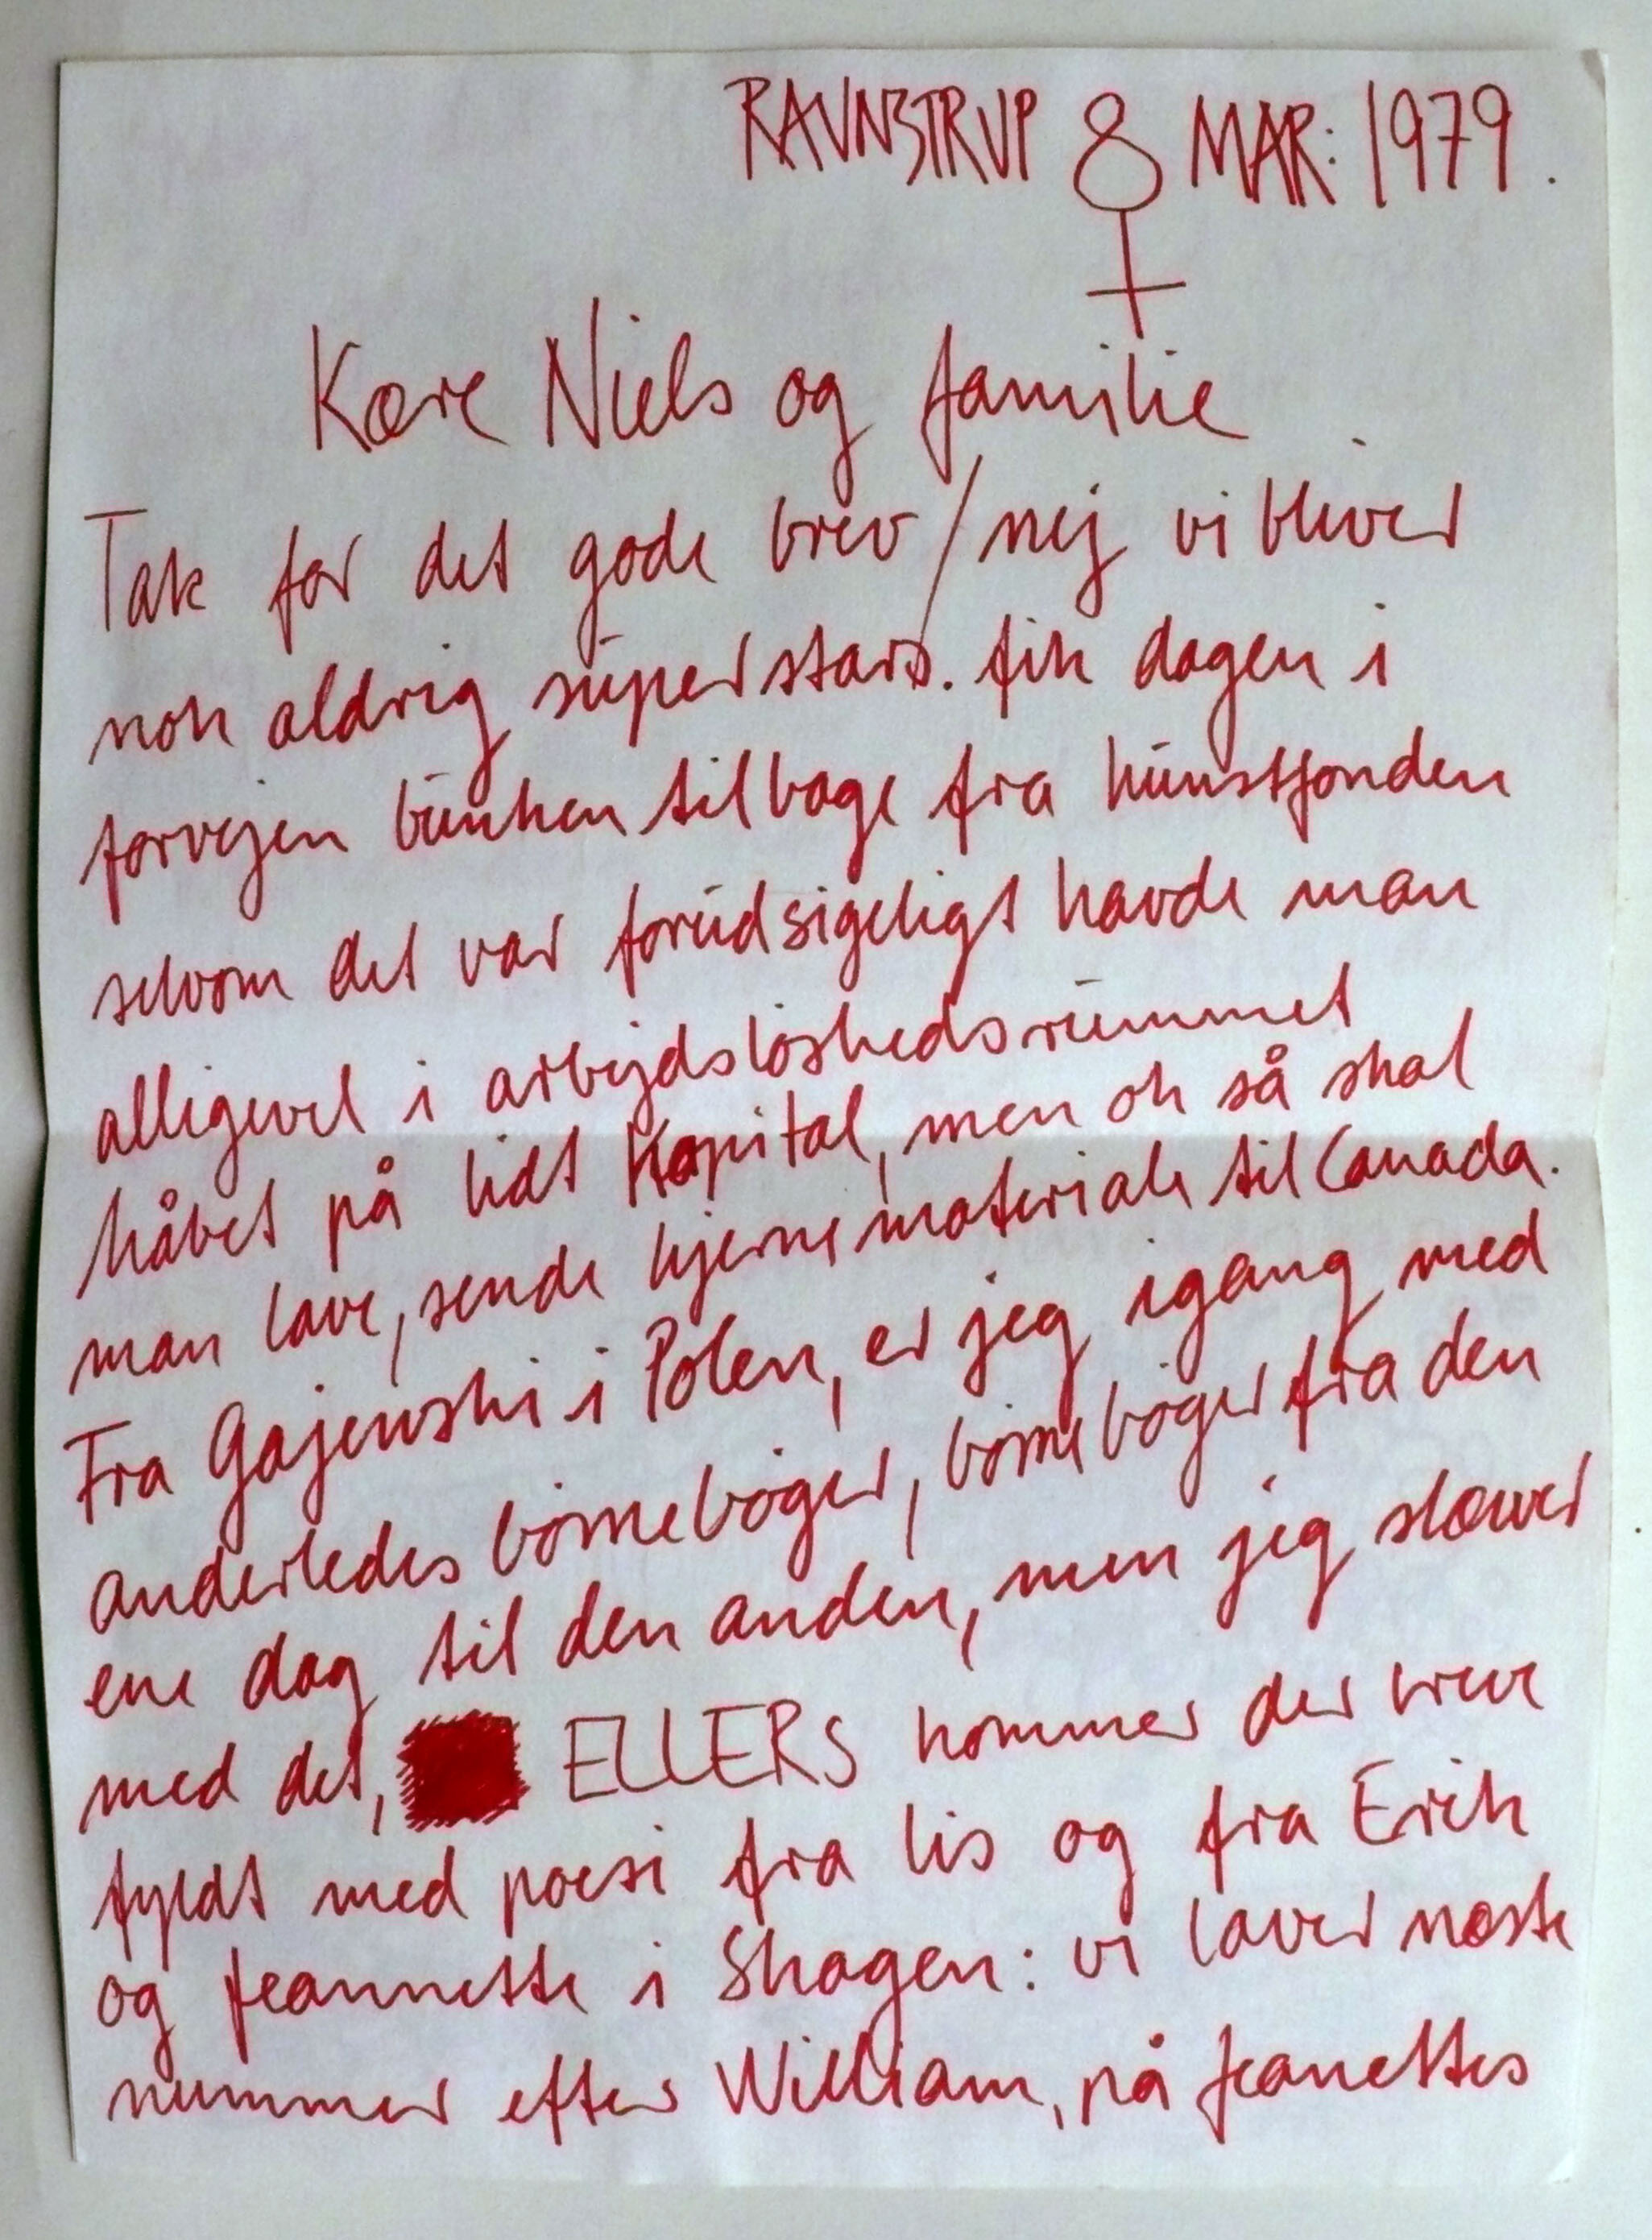 RAVNSTRUP 8 MAR: 1979.
Kære Niels og familie
Tak for det gode brev / nej vi bliver
nok aldrig superstars. fik dagen i
forvejen bunken tilbage fra kunstfonden
selvom det var forudsigeligt havde man
alligevel i arbejdsløshedsrummet
håbet på lidt Kapital, men ok så skal
man lave, sende hjernemateriale til Canada.
Fra Gajewski i Polen, er jeg igang med
anderledes børnebøger, børnebøger fra den
ene dag til den anden, men jeg slæver
med det, ELLERS kommer der breve
fyldt med poesi fra Lis og fra Erik
og Jeannette i Skagen: vi laver næste
nummer efter William, på Jeanettes